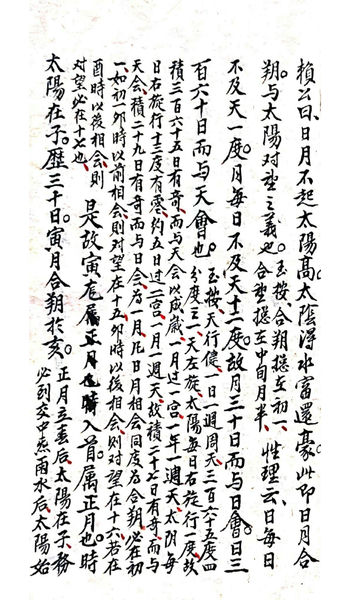 賴公曰。日月不起太陽高。太陰浮水富還豪。此即日月合
朔。與太陽對望之義也。玉按、合朔總在初一、合望總在中旬月半、性理云、日每日
不及天一度。月每日不及天十二度。故月三十日而與日會。日三
百六十日而與天會也。玉按、天行健、一日一週周天三百六十五度四
分度之一、天左旋、太陽每日右旋行一度、故
積三百六十五日有奇、而與天會以成歲、一月過一宮、一年一週天、太阴每
日右旋行十三度有零、約五日过二宮、一月一週天、故積二十七日有奇、而與
天會、積二十九日有奇而與日會、為一月、凡日月相會同度為合朔、必在初
一、如初一卯時以前相會、則對望在十五、卯時以後相會、則對望在十六、若在
酉時以後相會、則
對望必在十七也、是故寅厐屬正月也。時入首。屬正月也。時
太陽在子。歷三十日。寅月合朔於亥。正月立春后、太陽在子、務
必到交中炁雨水后、太陽始